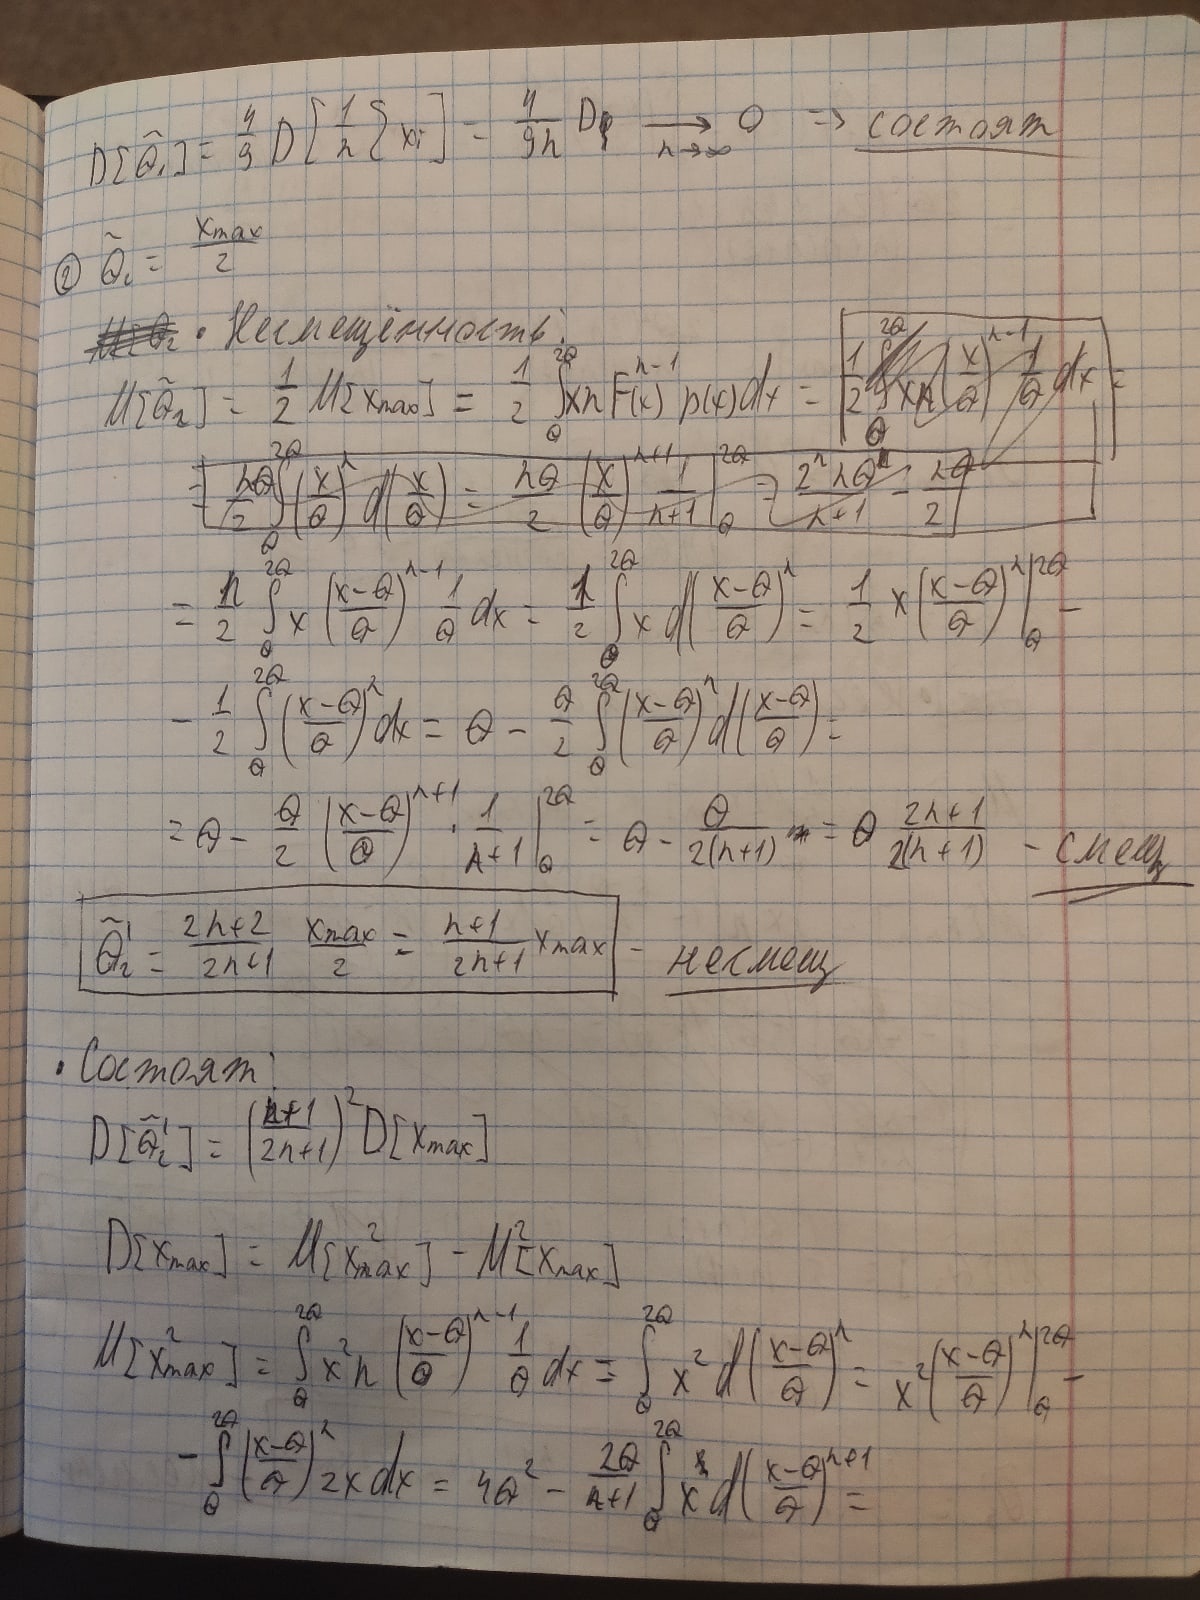 D[θ̃₁] = 4/9 D[1/n Σ xᵢ] = 4/(9n) Dξ ⟶ 0 (n→∞) ⇒ состоят
② θ̃₂ = xmax/2
• Несмещённость:
M[θ̃₂] = 1/2 M[xmax] = 1/2 ∫_θ^{2θ} x n F(x)^{n-1} p(x)dx = 1/2 ∫_θ^{2θ} x n (x/θ)^{n-1} 1/θ dx =
= nθ/2 ∫_θ^{2θ} (x/θ)^n d(x/θ) = nθ/2 (x/θ)^{n+1} 1/(n+1) |_θ^{2θ} = 2^n nθ/(n+1) - nθ/2
= n/2 ∫_θ^{2θ} x ((x-θ)/θ)^{n-1} 1/θ dx = 1/2 ∫_θ^{2θ} x d((x-θ)/θ)^n = 1/2 x ((x-θ)/θ)^n |_θ^{2θ} -
- 1/2 ∫_θ^{2θ} ((x-θ)/θ)^n dx = θ - θ/2 ∫_θ^{2θ} ((x-θ)/θ)^n d((x-θ)/θ) =
= θ - θ/2 ((x-θ)/θ)^{n+1} · 1/(n+1) |_θ^{2θ} = θ - θ/(2(n+1)) = θ (2n+1)/(2(n+1)) - смещ
θ̃₂' = (2n+2)/(2n+1) xmax/2 = (n+1)/(2n+1) xmax - несмещ
• Состоят:
D[θ̃₂'] = ((n+1)/(2n+1))² D[xmax]
D[xmax] = M[x²max] - M²[xmax]
M[x²max] = ∫_θ^{2θ} x² n ((x-θ)/θ)^{n-1} 1/θ dx = ∫_θ^{2θ} x² d((x-θ)/θ)^n = x² ((x-θ)/θ)^n |_θ^{2θ} -
- ∫_θ^{2θ} ((x-θ)/θ)^n 2x dx = 4θ² - 2θ/(n+1) ∫_θ^{2θ} x d((x-θ)/θ)^{n+1} =